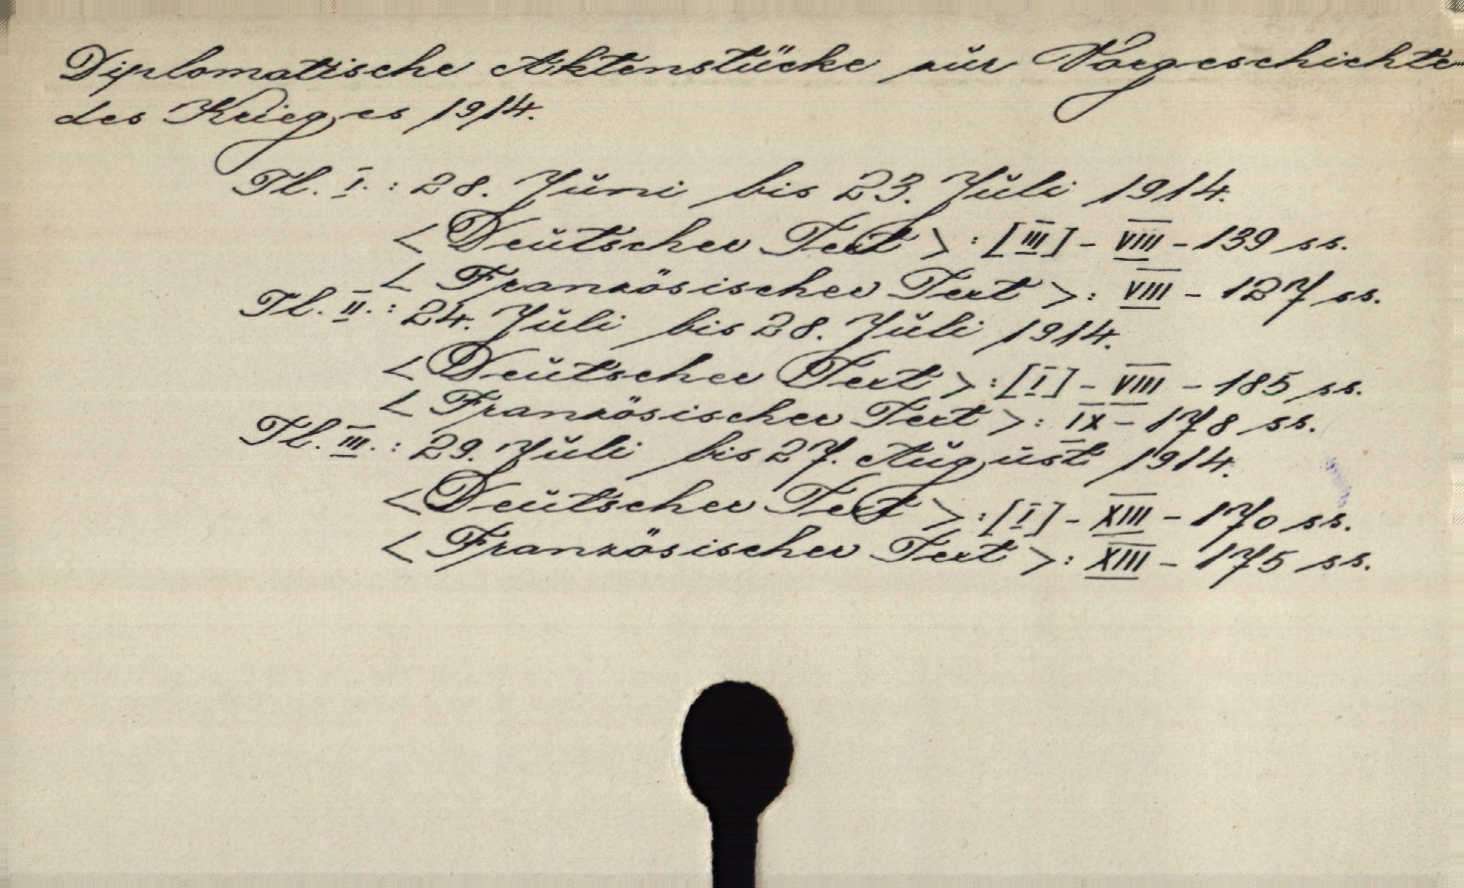 Diplomatische Aktenstücke zur Vorgeschichte
des Krieges 1914.
Tl. I. : 28. Juni bis 23. Juli 1914.
< Deutscher Text > : [III] - VIII - 139 ss.
< Französischer Text > : VIII - 127 ss.
Tl. II. : 24. Juli bis 28. Juli 1914.
< Deutscher Text > : [I] - VIII - 185 ss.
< Französischer Text > : IX - 178 ss.
Tl. III. : 29. Juli bis 27. August 1914.
< Deutscher Text > : [I] - XIII - 170 ss.
< Französischer Text > : XIII - 175 ss.